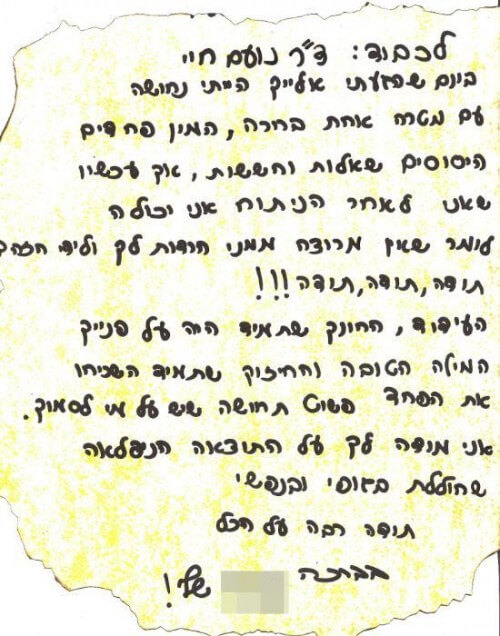 לכבוד: ד"ר נועם חיי
ביום שהגעתי אלייך הייתי נחושה
עם מטרה אחת ברורה, המון פחדים
היסוסים שאלות וחששות, אך עכשיו
שאני לאחר הניתוח אני יכולה
לומר שאין מרוצה ממני הודות לך ולידי הזהב
תודה, תודה, תודה!!!
העידוד, החיוך שתמיד היה על פנייך
המילה הטובה והחיזוק שתמיד השכיחו
את הפחד פשוט תחושה שיש על מי לסמוך.
אני מודה לך על התוצאה הנפלאה
שחוללת בגופי ובנפשי
תודה רבה על הכל
באהבה
שלך!